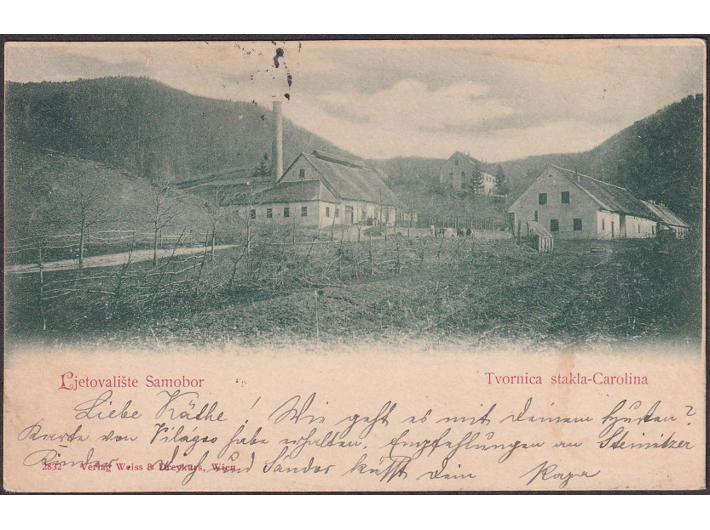 Ljetovalište Samobor
Tvornica stakla-Carolina
Liebe Käthe! Wie geht es mit deinem Husten?
Karte von Világos habe erhalten. Empfehlungen an Steinitzer
Kinder. Dich und Sándor küsst dein Papa
2832 Verlag Weiss & Dreykurs, Wien